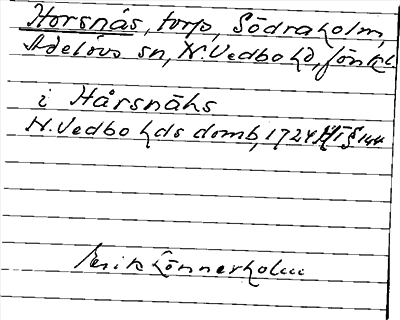 Horsnäs, torp, Södraholm,
Adelövs sn, N. Vedbo hd, Jönk. l
i Hårsnähs
N. Vedbo hds domb, 1724 HT § 144
Erik Lönnerholm